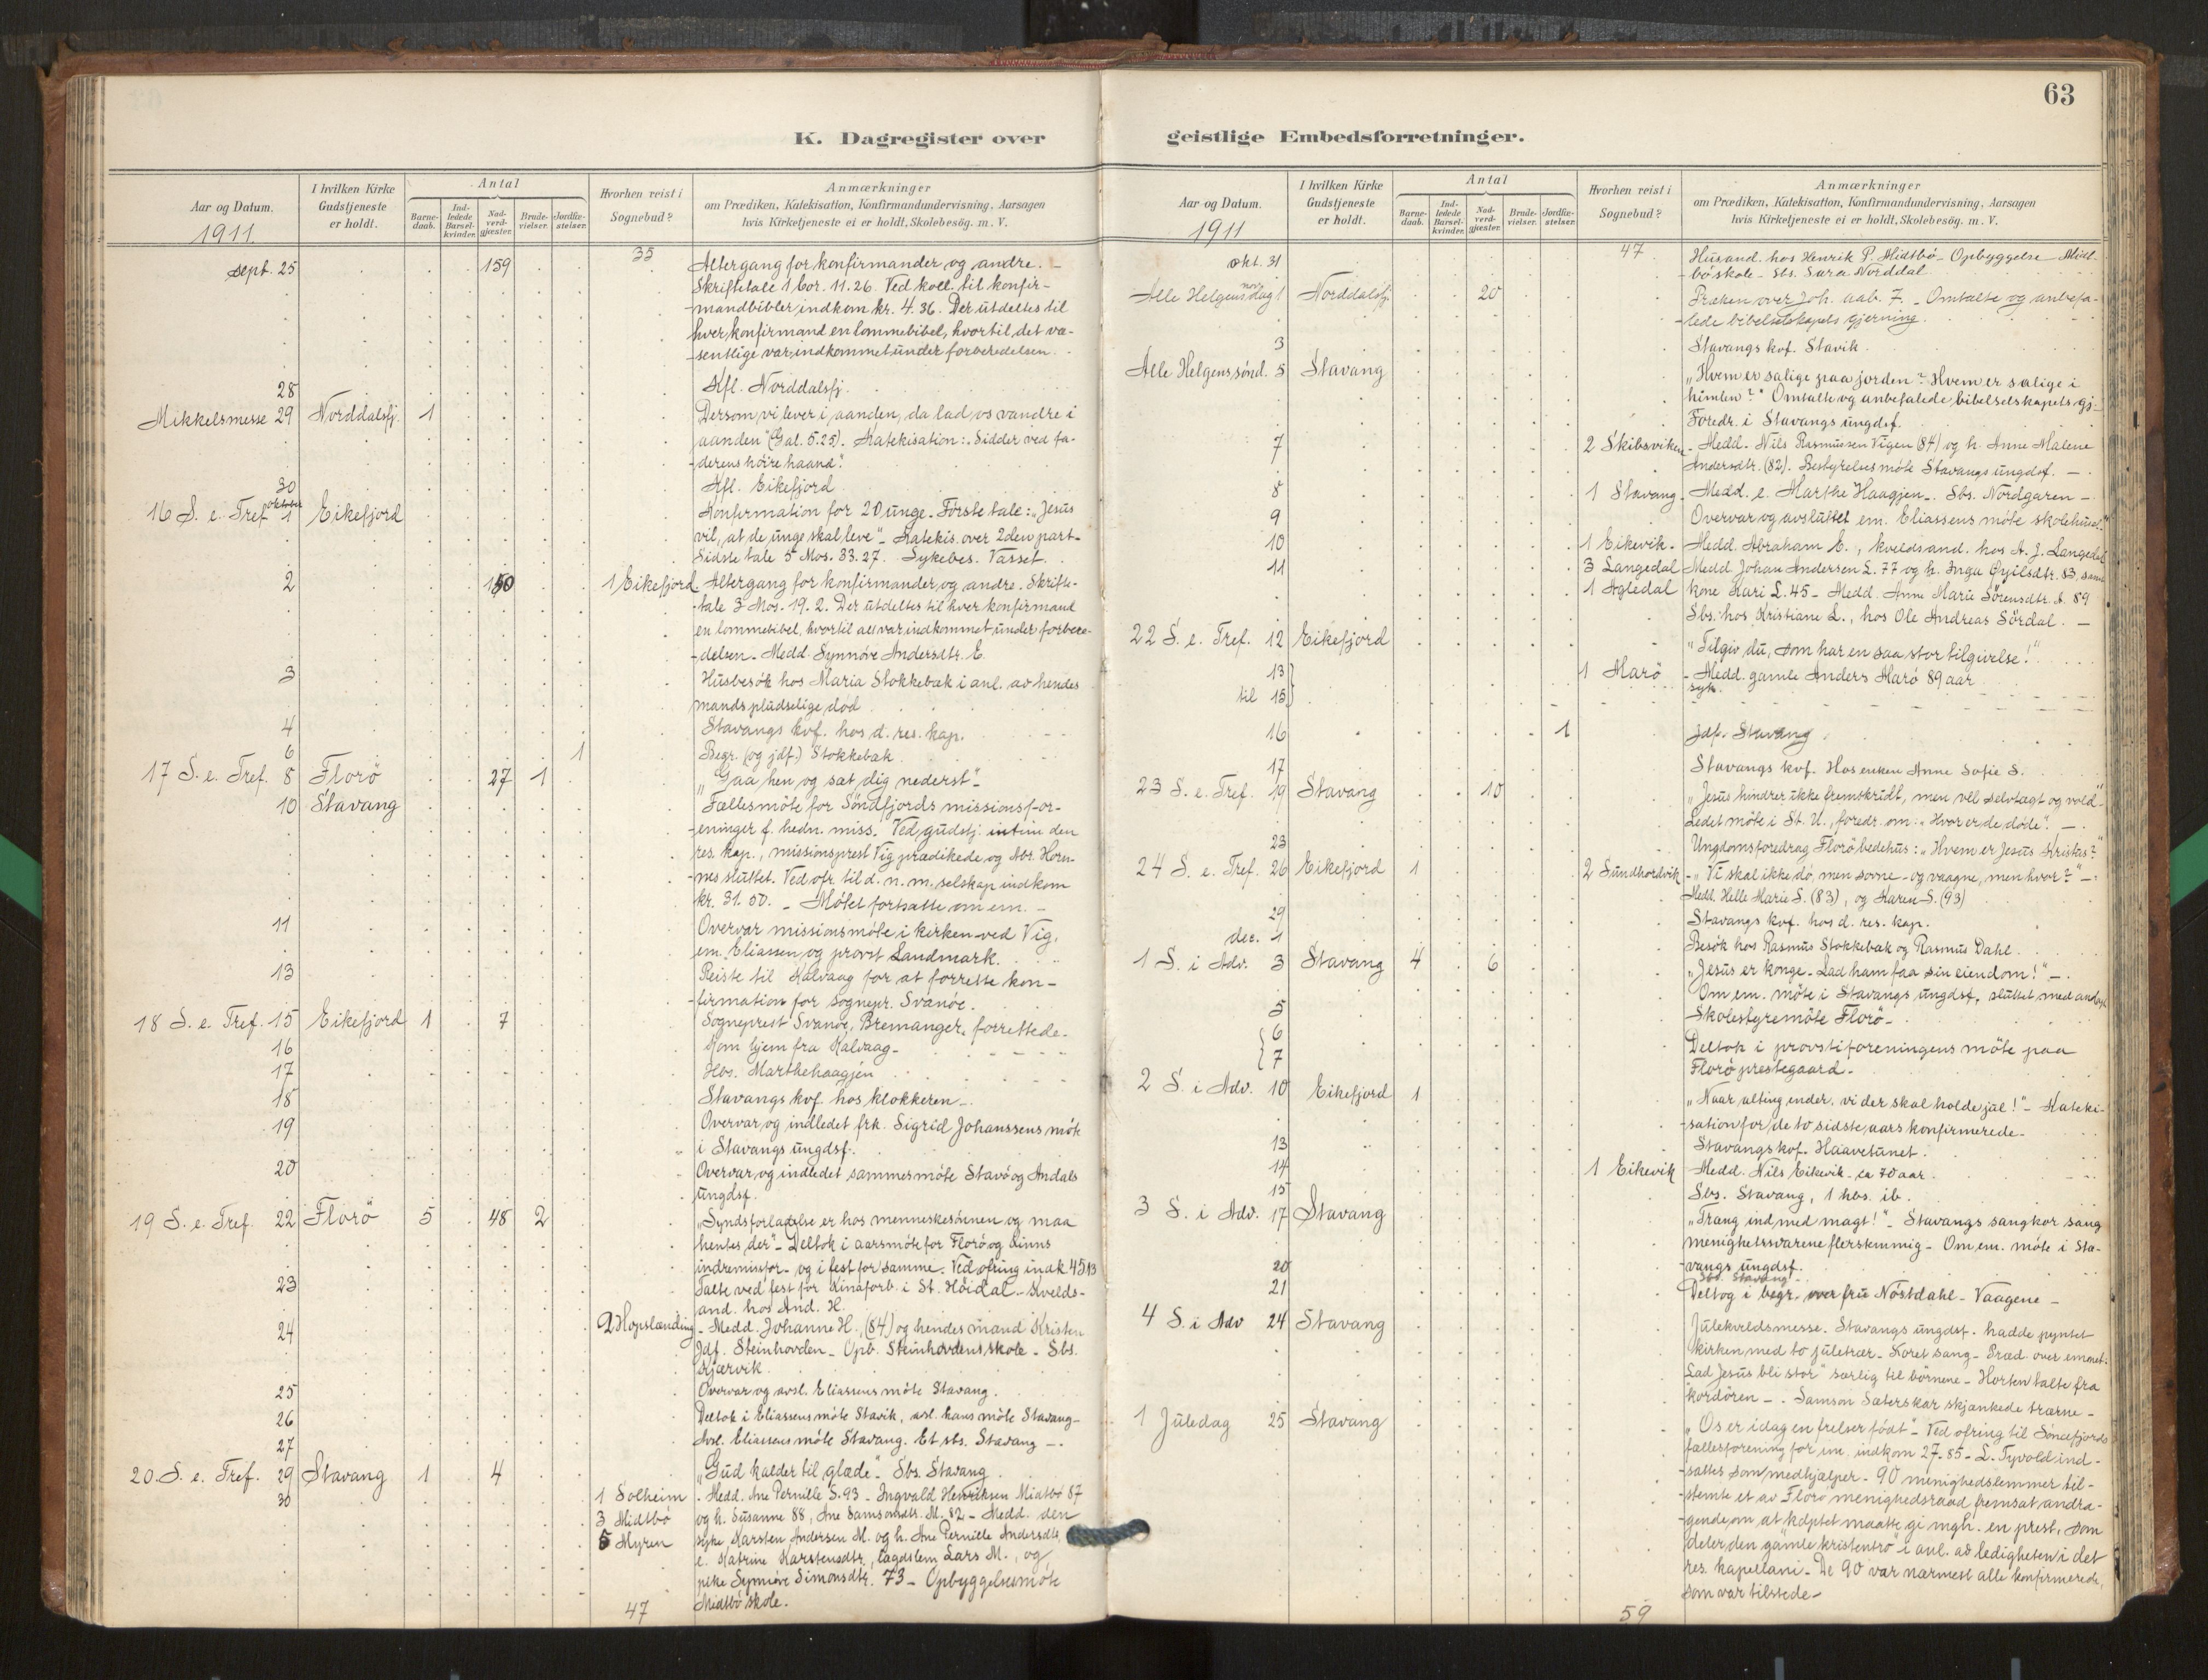 63
K. Dagregister over
Aar og Datum.
1911.
I hvilken Kirke Gudstjeneste er holdt.
Antal
Barnedaab.
Indledede Barselkvinder.
Nadverdgjæster.
Brudevielser.
Jordfæstelser.
Hvorhen reist i Sognebud?
Anmærkninger
om Prædiken, Katekisation, Konfirmandundervisning, Aarsagen
hvis Kirketjeneste ei er holdt, Skolebesög. m. V.
35
sept. 25 159 Altergang for konfirmander og andre. -
Skriftetale 1 Cor. 11.26. Ved koll. til konfir-
-mandbibler indkom kr. 4.36. Der utdeltes til
hver konfirmand en lommebibel, hvortil det væ-
-sentlige var indkommet under forberedelsen.
28 Kfl. Norddalsfj.
Mikkelsmesse 29 Norddalsfj. 1 Dersom vi lever i aanden, da lad os vandre i
aanden" (Gal. 5.25). Katekisation: "Sidder ved fa-
-derens höire haand".
30 Kfl. Eikefjord
16 S. e. Tref. oktober 1 Eikefjord Konfirmation for 20 unge. Förste tale: "Jesus
vil, at de unge skal leve" - Katekis. over 2den part -
Sidste tale 5 Mos. 33.27. Sykebes. Vasset.
2 150 1 Eikefjord Altergang for konfirmander og andre. Skrifte-
-tale 3 Mos. 19.2. Der utdeltes til hver konfirmand
en lommebibel, hvortil alt var indkommet under forbere-
-delsen. Medd. Synnöve Andersdtr. E.
3 Husbesök hos Maria Stokkebæk i anl. av hendes
mands pludselige död
4 Stavangs kvf. hos d. res. kap.
6 1 Begr. (og jdf.) Stokkebæk
17 S. e. Tref. 8 Florö 27 1 "Gaa hen og sæt dig nederst" -
10 Stavang Fællesmöte for Söndfjords missionsfor-
-eninger f. hedn. miss. Ved gudstj. intim den
res. kap., missionsprest Vig prædikede og Abr. Horn-
-nes sluttet. Ved ofr. til d. n. m. selskap indkom
kr. 31.50. - Mötet fortsatte om em. -
11 Overvar missionsmöte i kirken ved Vig,
em. Eliassen og provst Landmark.
13 Reiste til Kalvaag for at forrette kon-
-firmation for sognepr. Svanöe.
18 S. e. Tref. 15 Eikefjord 1 7 Sogneprest Svanöe, Bremanger, forrettede.
16 Kom hjem fra Kalvaag -
17 Hbs. Marthehaagjen
18 Stavangs kvf. hos klokkeren -
19 Overvar og indledet frk. Sigrid Johanssens möte
i Stavangs ungdsf.
20 Overvar og indledet sammes möte Stavö og Andals
ungdsf.
19 S. e. Tref. 22 Florö 5 48 2 "Syndsforladelse er hos menneskesönnen og maa
hentes der" - Deltok i aarsmöte for Florö og Kinns
indremisfor. og i fest for samme. Ved ofring indk. 45,13
23 Talte ved fest for Kinaforb. i St. Höidal. - Kvelds-
and. hos And. H.
24 2 Hopslanding - Medd. Johanne H., (84) og hendes mand Kristen
Jdf. Steinhovden - Opb. Steinhovdens skole - Sbs.
Kjærvik
25 Overvar og avsl. Eliassens möte Stavang.
26 Deltok i Eliassens möte Stavik, avsl. hans möte Stavang -
27 Avsl. Eliassens möte Stavang. Et sbs. Stavang -
20. S. e. Tref. 29 Stavang 1 4 "Gud kalder til glæde". Sbs. Stavang.
30 1 Solheim - Medd. Ane Pernille S. 93 - Ingvald Henriksen Midtbö 87
3 Midtbö og h. Susanne 88, Ane Samsonsdtr. M. 82 - Medd. den
5 Myren syke Karsten Andersen M. og h. Ane Pernille Andersdtr.
e. Katrine Karstensdtr., lægdslem Lars M., og
pike Synnöve Simonsdtr. 73 - Opbyggelsesmöte
Midtbö skole.
47
geistlige Embedsforretninger.
Aar og Datum.
1911
I hvilken Kirke Gudstjeneste er holdt.
Antal
Barnedaab.
Indledede Barselkvinder.
Nadverdgjæster.
Brudevielser.
Jordfæstelser.
Hvorhen reist i Sognebud?
Anmærkninger
om Prædiken, Katekisation, Konfirmandundervisning, Aarsagen
hvis Kirketjeneste ei er holdt, Skolebesög. m. V.
47
okt. 31 Husand. hos Henrik P. Midtbö - Opbyggelse Midt-
-bö skole - Sbs. Sara Norddal
Alle Helgensdag nov 1 Norddalsfj. 20 Præken over Joh. aab. 7. - Omtalte og anbefa-
-lede bibelselskapets gjerning.
3 Stavangs kvf. Stavik.
Alle Helgens sönd. 5 Stavang "Hvem er salige paa jorden? Hvem er salige i
himlen?" Omtalte og anbefalede bibelselskapets gj.
Foredr. i Stavangs ungdsf.
7 2 Skibsviken - Medd. Nils Rasmussen Vigen (84) og h. Anne Malene
Andersdtr. (82). Bestyrelsesmöte Stavangs ungdsf. -
8 1 Stavang - Medd. e. Marthe Haagjen - Sbs. Nordgaren -
9 Overvar og avsluttet em. Eliassens möte skolehuset
10 1 Eikevik - Medd. Abraham E., kveldsand. hos A. J. Langedal
11 3 Langedal Medd. Johan Andersen L. 77 og h. Inga 83, samt
1 Agledal kone Kari L. 45 - Medd. Anne Marie Sörensdtr. A. 89
Sbs. hos Kristiane L., hos Ole Andreas Sördal. -
22 S. e. Tref. 12 Eikefjord "Tilgiv du, som har en saa stor tilgivelse!"
13 1 Marö - Medd. gamle Anders Marö 89 aar
til 15 syk.
16 1 Jdf. Stavang
17 Stavangs kvf. Hos enken Anne Sofie S.
23 S. e. Tref. 19 Stavang 10 "Jesus hindrer ikke fremskridt, men vel selvtægt og vold" -
Ledet möte i St. U., foredr. om: "Hvor er de döde". -
23 Ungdomsforedrag Florö bedehus: "Hvem er Jesus Kristus?"
24 S. e. Tref. 26 Eikefjord 1 2 Sundhordvik - "Vi skal ikke dö, men sovne - og vaagne, men hvor?" -
Medd. Helle Marie S. (83), og Karen S. (93)
29 Stavangs kvf. hos d. res. kap.
dec. 1 Besök hos Rasmus Stokkebæk og Rasmus Dahl.
1 S. i Adv. 3 Stavang 4 6 "Jesus er konge. Lad ham faa sin eiendom!" -
Om em. möte i Stavangs ungdsf. sluttet med andagt
5 Skolestyremöte Florö -
6 Deltok i provstiforeningens möte paa
7 Florö prestegaard -
2 S. i Adv. 10 Eikefjord 1 "Naar alting ender, vi der skal holde jul!" - Kateki-
-sation for de to sidste aars konfirmerede -
13 Stavangs kvf. Haavetunet.
14 1 Eikevik Medd. Nils Eikevik ca 70 aar.
15 Sbs. Stavang, 1 hbs. ib.
3 S. i Adv. 17 Stavang "Træng ind med magt!" - Stavangs sangkor sang
menighetssvarene flerstemmig - Om em. möte i Sta-
-vangs ungdsf.
20 Sbs. Stavang -
21 Deltog i begr. over fru Nöstdahl - Vaagene -
4 S. i Adv 24 Stavang Julekveldsmesse. Stavangs ungdsf. hadde pyntet
kirken med to juletrær - Koret sang - Præd. over emnet:
"Lad Jesus bli stor" særlig til börnene - Horten talte fra
kordören - . Samson Sæterskar skjænkede trærne -
1 Juledag 25 Stavang "Os er idag en frelser födt" - Ved ofring til Söndfjords
fællesforening for im. indkom 27.85 - L. Tyvold ind-
-sattes som medhjælper - 90 menighedslemmer til-
-stemte et av Florö menighedsraad fremsat andra-
-gende om at kdptet maatte gi mgh. en prest, som
deler den "gamle kristentro" i anl. av ledigheten i det
res. kapellani - De 90 var nærmest alle konfirmerede,
som var tilstede -
59